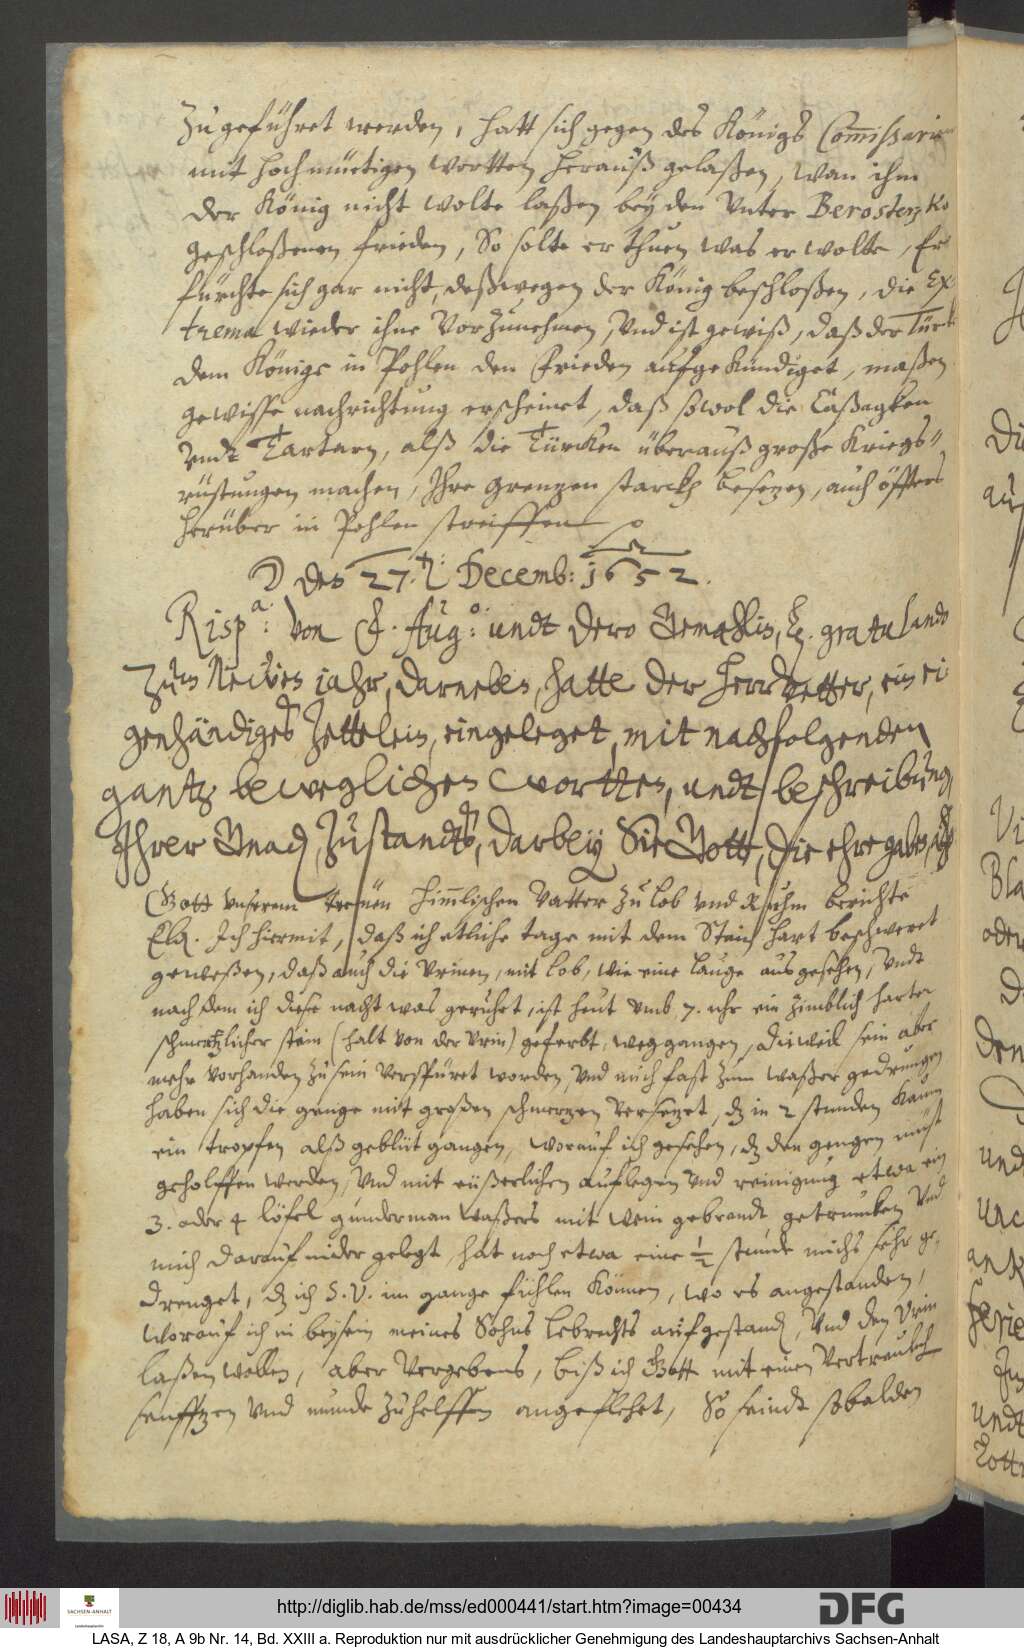 Zugeführet werden, hatt sich gegen des Königs Com̅issarien
mit hochmüetigen wortten herauß gelaßen, wan ihm
der König nicht wolte laßen bey den unter Berostenzko
geschloßenen frieden, So solte er thuen was er wolte, Er
fürchte sich gar nicht, deßwegen der König beschloßen, die Ex-
trema wieder ihne vorzunehmen, Und ist gewiß, daß der Türck
dem Könige in Pohlen den Frieden aufgekündiget, maßen
gewisse nachrichtung erscheinet, daß sowol die Caßagken
undt Tartarn, alß die Türcken überauß große Kriegs-
rüstungen machen, Ihre grentzen starck besetzen, auch öffters
herüber in Pohlen streiffen
☽ den 27. Decemb: 1652.
Risp.a: von F. Aug.o: undt dero Gemahlin, gratulando
zum Neuen jahr, darneben, hatte der Herr Vetter, ein ei
genhändiges Zettelein, eingeleget, mit nachfolgenden
gantz beweglichen wortten, undt beschreibung,
Ihrer Gnad. Zustandts, darbey Sie Gott, die ehre gaben,
Gott unserem treuen himlischen Vatter zu lob und Ruhm berichte
Eld. Ich hiermit, daß ich etliche tage mit dem Stein hart beschweret
geweßen, daß auch die Urinen, mit lob, wie eine lauge ausgesehen, Undt
nach dem ich diese nacht was geruhet, ist heut umb 7. uhr ein zimblich harter
schmertzlicher stein (halt von der Urin) geferbt, weggangen, Dieweil sein aber
mehr vorhanden zu sein verspüret worden, Und mich fast zum waßer gedrungen
haben sich die genge mit großen schmertzen versetzet, dz in 2 stunden kaum
ein tropfen alß geblüt gangen, worauf ich gesehen, dz den gengen must
geholffen werden, Und mit eüßerlichen auflegen und reinigung etwa ein
3. oder 4 löfel gunderman waßers mit Wein gebrandt getruncken Und
mich darauf nider gelegt, hat noch etwa eine ½ stunde michs sehr ge-
drenget, dz ich S. V. im gange fühlen können, wo es angestanden,
worauf ich in beysein meines Sohns Lebrechts aufgestand. Und den Urin
laßen wollen, aber vergebens, biß ich Gott mit einen vertreulich
seufftzen und munde zuhelffen angeflehet, So seindt sobalden
http://diglib.hab.de/mss/ed000441/start.htm?image=00434
SACHSEN-ANHALT
DFG
LASA, Z 18, A 9b Nr. 14, Bd. XXIII a. Reproduktion nur mit ausdrücklicher Genehmigung des Landeshauptarchivs Sachsen-Anhalt